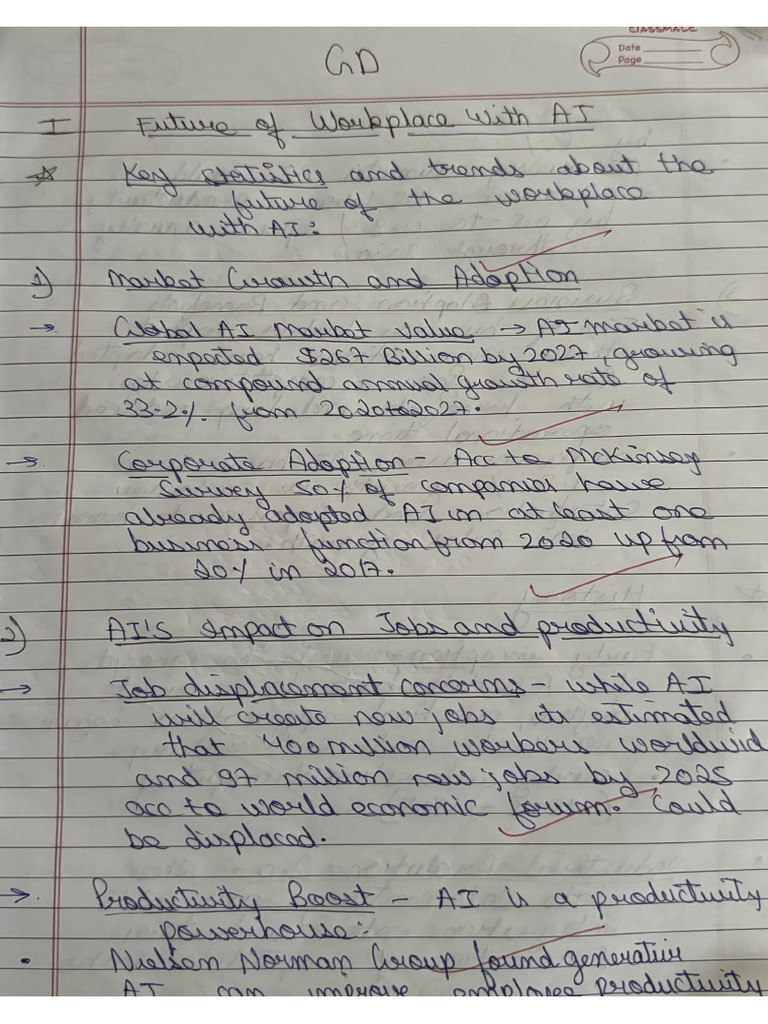 CLASSMATE
Date
Page
GD
I Future of Workplace With AI
☆ Key statistics and trends about the
future of the workplace
with AI:
1) Market Growth and Adoption
→ Global AI Market Value → AI market is
expected $267 Billion by 2027, growing
at compound annual growth rate of
33.2% from 2020 to 2027.
→ Corporate Adoption - Acc to McKinsey
Survey 50% of companies have
already adopted AI in at least one
business function from 2020 up from
20% in 2017.
2) AI'S Impact on Jobs and productivity
→ Job displacement concerns - while AI
will create new jobs its estimated
that 400 million workers worldwid
and 97 million new jobs by 2025
acc to world economic forum. Could
be displaced.
→ Productivity Boost - AI is a productivity
powerhouse:
• Nielsen Norman Group found generative
AI can improve employee productivity